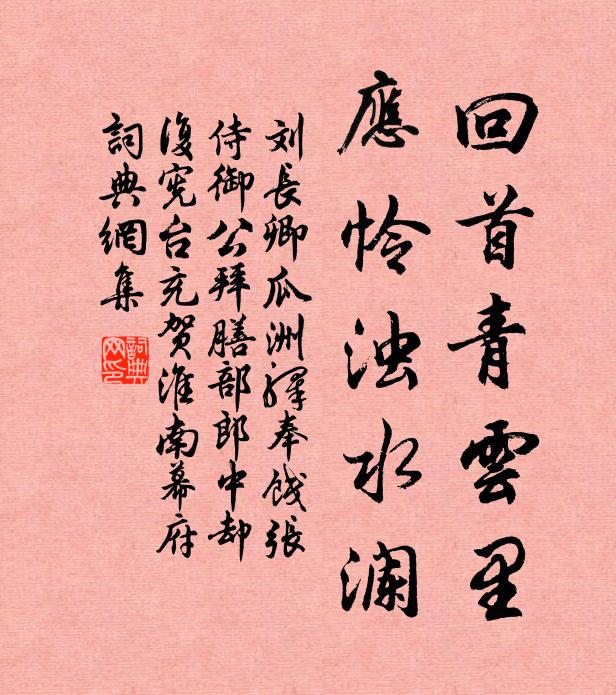 回首青雲里
應怜浊水澜
刘長卿瓜洲驛奉餞張
侍御公拜膳部郎中却
復宪台充贺淮南幕府
詞典網集
詞典网印